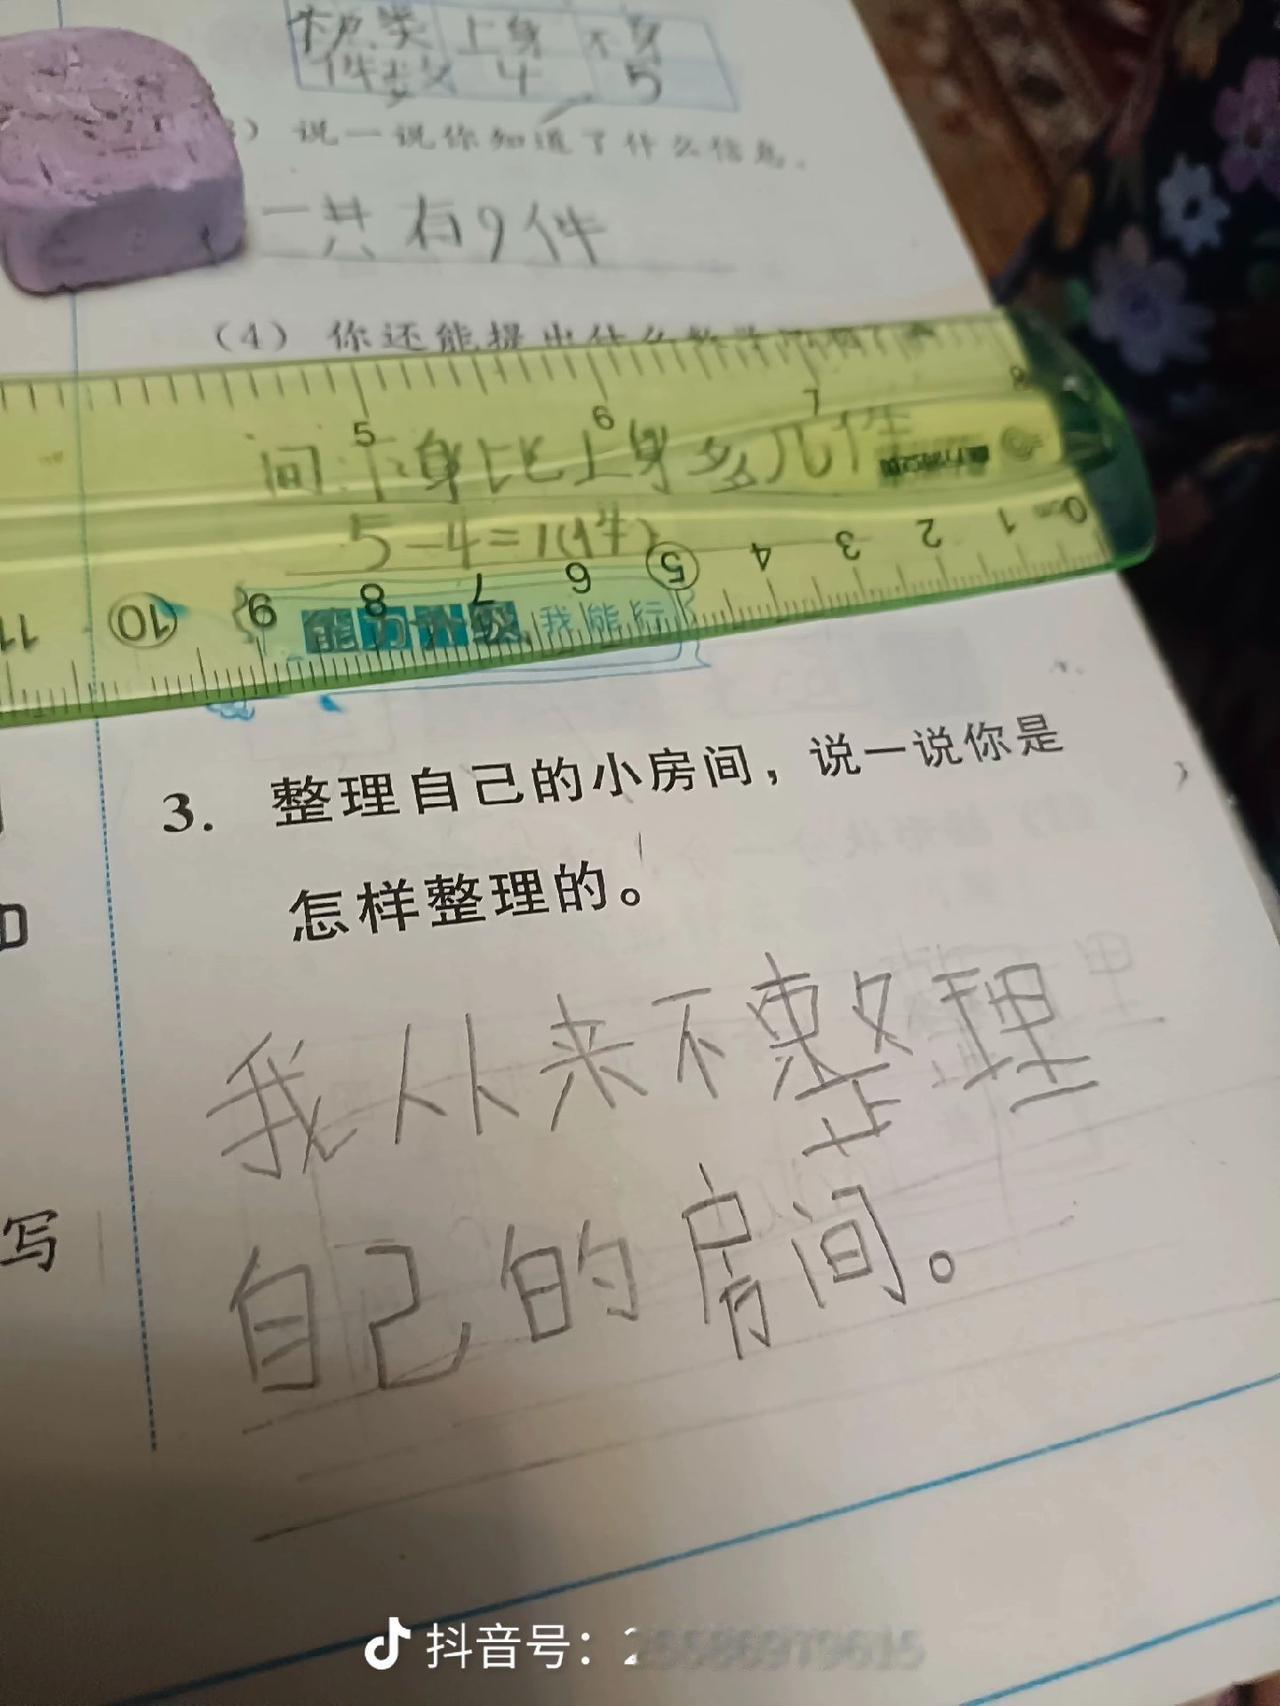 种类 上身 下身
件数 4 5
）说一说你知道了什么信息。
一共有9件
（4）你还能提出什么数学问题？
问：下身比上身多几件
5-4=1(件)
5 6 7 8
11 10 9 8 7 6 5 4 3 2 1 0cm
能力升级 我能行
3. 整理自己的小房间，说一说你是
怎样整理的。
我从来不整理
自己的房间。
写
抖音号：